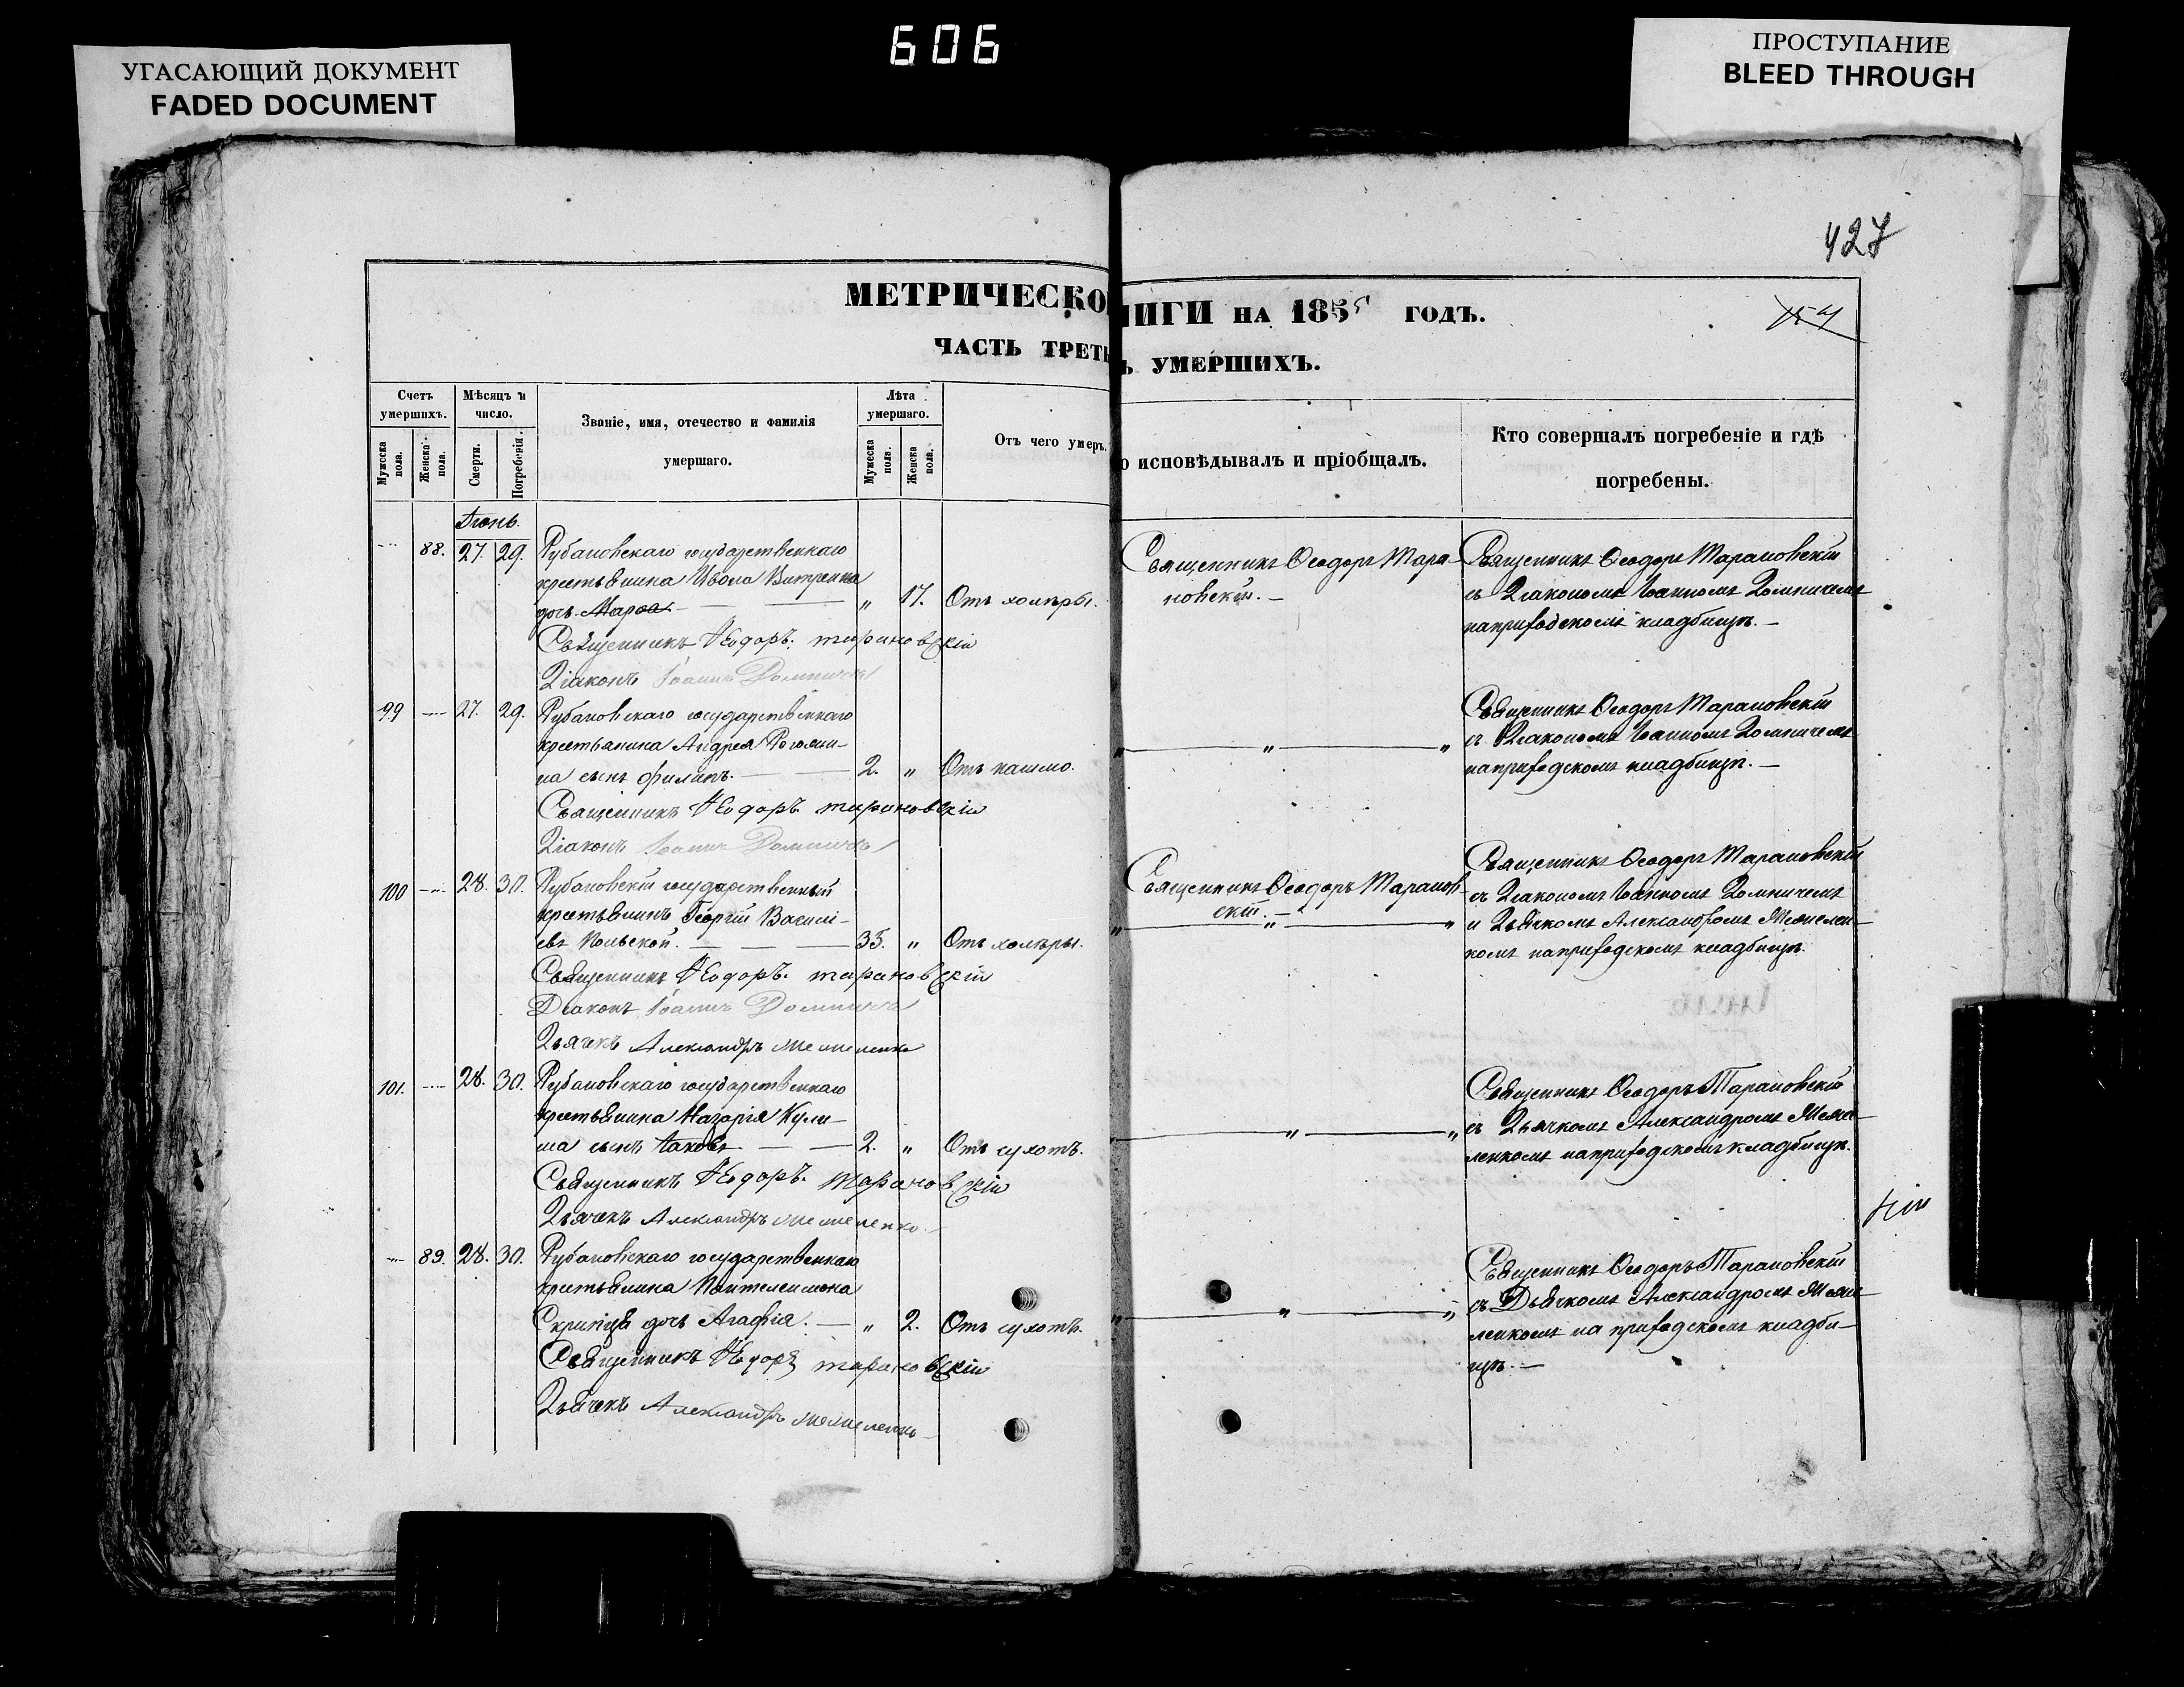 606
УГАСАЮЩИЙ ДОКУМЕНТ
FADED DOCUMENT
ПРОСТУПАНИЕ
BLEED THROUGH
427
МЕТРИЧЕСКО
НИГИ НА 1855 ГОДЪ.
154
ЧАСТЬ ТРЕТЬ
Ъ УМЕРШИХЪ.
Счетъ умершихъ.
Мужеска пола.
Женска пола.
Мѣсяцъ и число.
Смерти.
Погребенія.
Званіе, имя, отечество и фамилія
умершаго.
Лѣта умершаго.
Мужеска пола.
Женска пола.
Отъ чего умеръ.
о исповѣдывалъ и пріобщалъ.
Кто совершалъ погребеніе и гдѣ
погребены.
Іюнь.
88. 27. 29. Рубановскаго государственнаго
крестьянина
дочь Марѳа. — — „ 17. Отъ холеры.
Священникъ Ѳеодоръ Тарановскій
Діаконъ Іоаннъ
Священникъ Ѳеодоръ Тара-
новскій. —
Священникъ Ѳеодоръ Тарановскій
съ Діакономъ Іоанномъ
на приходскомъ кладбищѣ. —
99 — 27. 29. Рубановскаго государственнаго
крестьянина Андрея
на сынъ Филипъ. — — 2. „ Отъ кашлю.
Священникъ Ѳеодоръ Тарановскій
Діаконъ Іоаннъ
„ — „ — „
Священникъ Ѳеодоръ Тарановскій
съ Діакономъ Іоанномъ
на приходскомъ кладбищѣ. —
100 — 28. 30. Рубановскій государственный
крестьянинъ Георгій Василі-
евъ Польской. — — 35. „ Отъ холеры.
Священникъ Ѳеодоръ Тарановскій
Діаконъ Іоаннъ
Дьячекъ Александръ
Священникъ Ѳеодоръ Таранов-
скій. —
„ — „ — „
Священникъ Ѳеодоръ Тарановскій
съ Діакономъ Іоанномъ
и Дьячкомъ Александромъ
комъ на приходскомъ кладбищѣ.
101. — 28. 30. Рубановскаго государственнаго
крестьянина Назарія Кули-
ша сынъ Іаковъ — — 2. „ Отъ сухотъ.
Священникъ Ѳеодоръ Тарановскій
Дьячекъ Александръ
„ — „ — „
Священникъ Ѳеодоръ Тарановскій
съ Дьячкомъ Александромъ
ленкомъ на приходскомъ кладбищѣ.
— 89. 28. 30. Рубановскаго государственнаго
крестьянина Пантелеимона
Скрипця дочь Агафія. — „ 2. Отъ сухотъ.
Священникъ Ѳеодоръ Тарановскій
Дьячекъ Александръ
„ — „ — „
Священникъ Ѳеодоръ Тарановскій
съ Дьячкомъ Александромъ
ленкомъ на приходскомъ кладби-
щѣ. —